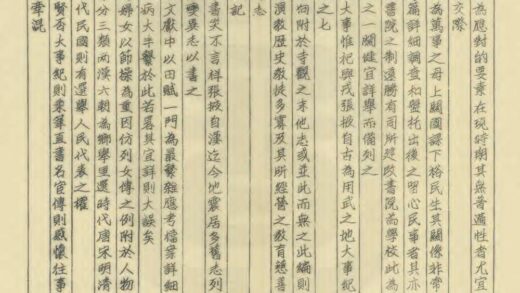 為應對的要素在現時期其無普適性者尤宜
交際
為萬事之母上關國課下裕民生其關係非常
萬詳細調查和盤托出後之留心民事者其亦
書院之制遷勝有司所建改書院為學校此為
之一關鍵宜詳舉而備列之
大事惟祀與戎張掖自古為用武之地大事紀
之七
均附於寺觀之末他志或並此而無之此編則
演教歷史教徒多寡及其所經營之教育慈善
志
記
書災不言祥張掖自漢迄今地震居多舊志列
變異志以書之
文獻中以田賦一門為最繁雜應考檔案詳細
病大半繫於此若畧其宜詳則大誤矣
婦女以節操為重因仿列女傳之例附於人物
分三類兩漢六朝為鄉舉里選時代唐宋明清
代民國則有選舉人民代表之權
賢否大事紀則秉筆直書名宦傳則感懷往事
幸混